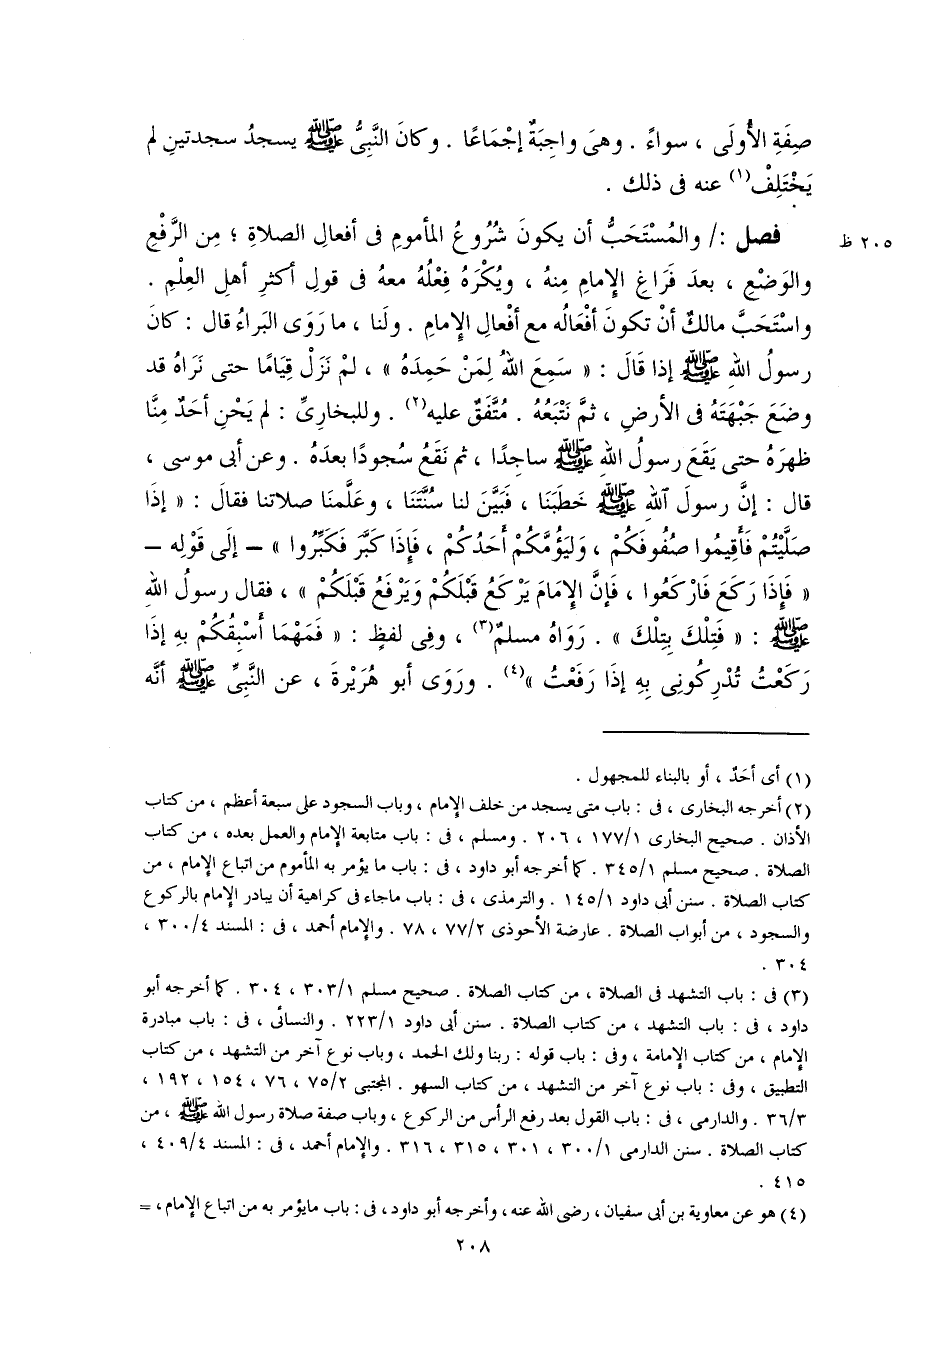 صِفَةِ الأُولَى ، سواءً . وهىَ واجِبَةٌ إجْمَاعًا . وكانَ النَّبِىُّ ﷺ يسجدُ سجدتينِ لم
يَخْتَلِفْ(١) عنه فى ذلك .
٢٠٥ ظ
فصل :/ والمُسْتَحَبُّ أن يكونَ شُرُوعُ المأمومِ فى أفعالِ الصلاةِ ؛ مِن الرَّفْعِ
والوَضْعِ ، بعدَ فَرَاغِ الإِمامِ مِنهُ ، ويُكْرَهُ فِعْلُهُ معهُ فى قولِ أكثرِ أهلِ العِلْمِ .
واسْتَحَبَّ مالكٌ أنْ تكونَ أفْعَالُه مع أفْعالِ الإِمامِ . ولَنا ، ما رَوَى البَراءُ قال : كانَ
رسولُ اللهِ ﷺ إذا قَالَ : « سَمِعَ اللهُ لِمَنْ حَمِدَهُ » ، لمْ نَزَلْ قِيَامًا حتى نَرَاهُ قد
وضَعَ جَبْهَتَهُ فى الأرضِ ، ثمَّ نَتْبَعُهُ . مُتَّفَقٌ عليه(٢) . وللبخارىِّ : لم يَحْنِ أحَدٌ مِنَّا
ظهرَهُ حتى يَقَعَ رسولُ اللهِ ﷺ ساجدًا ، ثم نَقَعُ سُجودًا بعدَهُ . وعن أبى موسى ،
قال : إنَّ رسولَ ٱللهِ ﷺ خَطَبَنَا ، فَبَيَّنَ لنا سُنَّتَنَا ، وعَلَّمنَا صلاتنا فقالَ : « إذَا
صَلَّيْتُمْ فَأَقِيمُوا صُفُوفَكُمْ ، وَلْيَؤُمَّكُمْ أَحَدُكُمْ ، فَإذَا كَبَّرَ فَكَبِّرُوا » – إلَى قَوْلِه –
« فَإِذَا رَكَعَ فَارْكَعُوا ، فَإنَّ الإِمَامَ يَرْكَعُ قَبْلَكُمْ وَيَرْفَعُ قَبْلَكُمْ » ، فقال رسولُ اللهِ
ﷺ : « فَتِلْكَ بِتِلْكَ » . رَوَاهُ مسلمٌ(٣) ، وفِى لفظٍ : « فَمَهْمَا أَسْبِقُكُمْ بِهِ إذَا
رَكَعْتُ تُدْرِكُونِى بِهِ إذَا رَفَعْتُ »(٤) . ورَوَى أبو هُرَيْرةَ ، عن النَّبِىِّ ﷺ أنَّه
(١) أى أحَدٌ ، أو بالبناء للمجهول .
(٢) أخرجه البخارى ، فى : باب متى يسجد من خلف الإمام ، وباب السجود على سبعة أعظم ، من كتاب
الأذان . صحيح البخارى ١/١٧٧ ، ٢٠٦ . ومسلم ، فى : باب متابعة الإمام والعمل بعده ، من كتاب
الصلاة . صحيح مسلم ١/٣٤٥ . كما أخرجه أبو داود ، فى : باب ما يؤمر به المأموم من اتباع الإمام ، من
كتاب الصلاة . سنن أبى داود ١/١٤٥ . والترمذى ، فى : باب ماجاء فى كراهية أن يبادر الإمام بالركوع
والسجود ، من أبواب الصلاة . عارضة الأحوذى ٢/٧٧ ، ٧٨ . والإمام أحمد ، فى : المسند ٤/٣٠٠ ،
٣٠٤ .
(٣) فى : باب التشهد فى الصلاة ، من كتاب الصلاة . صحيح مسلم ١/٣٠٣ ، ٣٠٤ . كما أخرجه أبو
داود ، فى : باب التشهد ، من كتاب الصلاة . سنن أبى داود ١/٢٢٣ . والنسائى ، فى : باب مبادرة
الإمام ، من كتاب الإمامة ، وفى : باب قوله : ربنا ولك الحمد ، وباب نوع آخر من التشهد ، من كتاب
التطبيق ، وفى : باب نوع آخر من التشهد ، من كتاب السهو . المجتبى ٢/٧٥ ، ٧٦ ، ١٥٤ ، ١٩٢ ،
٣/٣٦ . والدارمى ، فى : باب القول بعد رفع الرأس من الركوع ، وباب صفة صلاة رسول الله ﷺ ، من
كتاب الصلاة . سنن الدارمى ١/٣٠٠ ، ٣٠١ ، ٣١٥ ، ٣١٦ . والإمام أحمد ، فى : المسند ٤/٤٠٩ ،
٤١٥ .
(٤) هو عن معاوية بن أبى سفيان ، رضى الله عنه ، وأخرجه أبو داود ، فى : باب مايؤمر به من اتباع الإمام ، =
٢٠٨